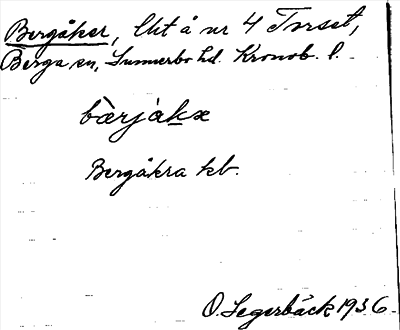 Bergåker, lht å nr 4 Torset,
Berga sn, Sunnerbo hd. Kronob. l.
bærjakæ
Bergåkra kb.
O. Segerbäck 1936.